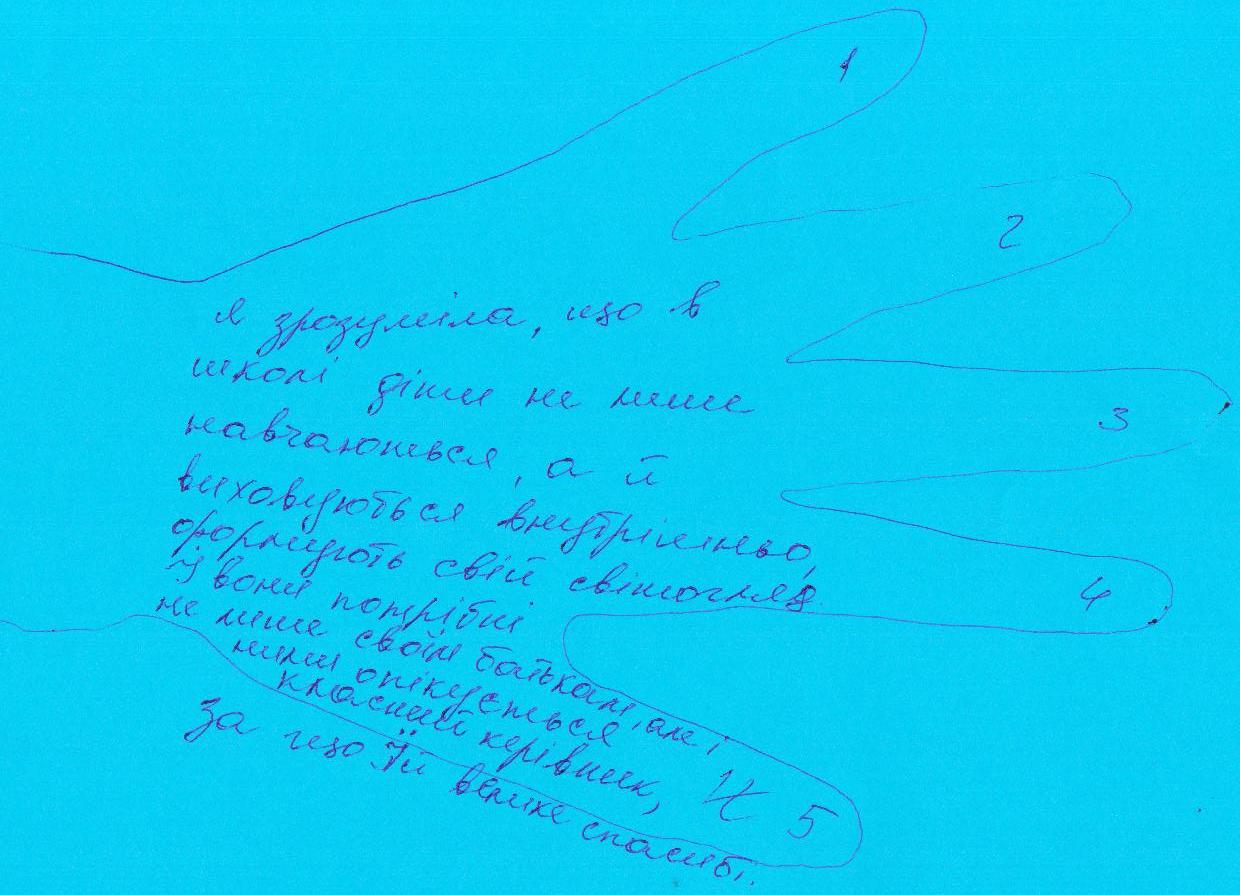 1
2
Я зрозуміла, що в
школі діти не лише
3
навчаються, а й
виховуються внутрішньо,
формують свій світогляд.
4
І вони потрібні
не лише своїм батькам, але і
ними опікується
класний керівник,
5
за що їй велике спасибі.